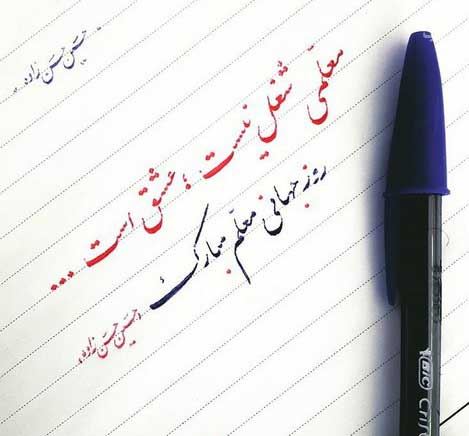 حسین حسن زاده
معلّمی شغل نیست؛ عشق است ...
روز جهانی معلّم مبارک
حسین حسن زاده
BIC CRIS